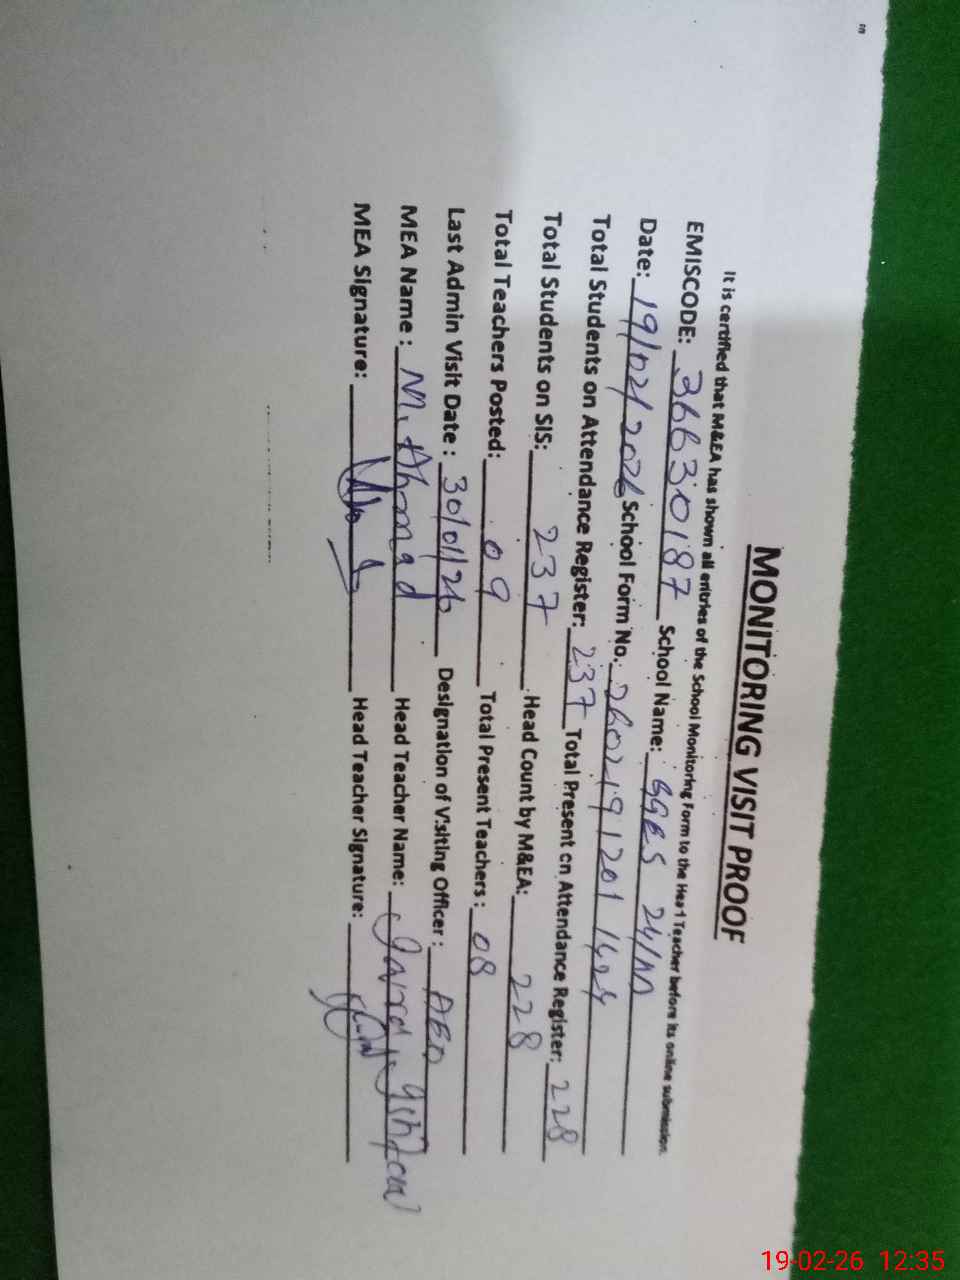 MONITORING VISIT PROOF
It is certified that M&EA has shown all entries of the School Monitoring Form to the Head Teacher before its online submission.
EMISCODE: 36630187 School Name: GGES 24/AA
Date: 19/02/2026 School Form No.: 2602191201 1424
Total Students on Attendance Register: 237 Total Present on Attendance Register: 228
Total Students on SIS: 237 Head Count by M&EA: 228
Total Teachers Posted: 09 Total Present Teachers: 08
Last Admin Visit Date: 30/01/26 Designation of Visiting Officer:
MEA Name: M. Ahmad Head Teacher Name:
MEA Signature: Head Teacher Signature:
19-02-26 12:35